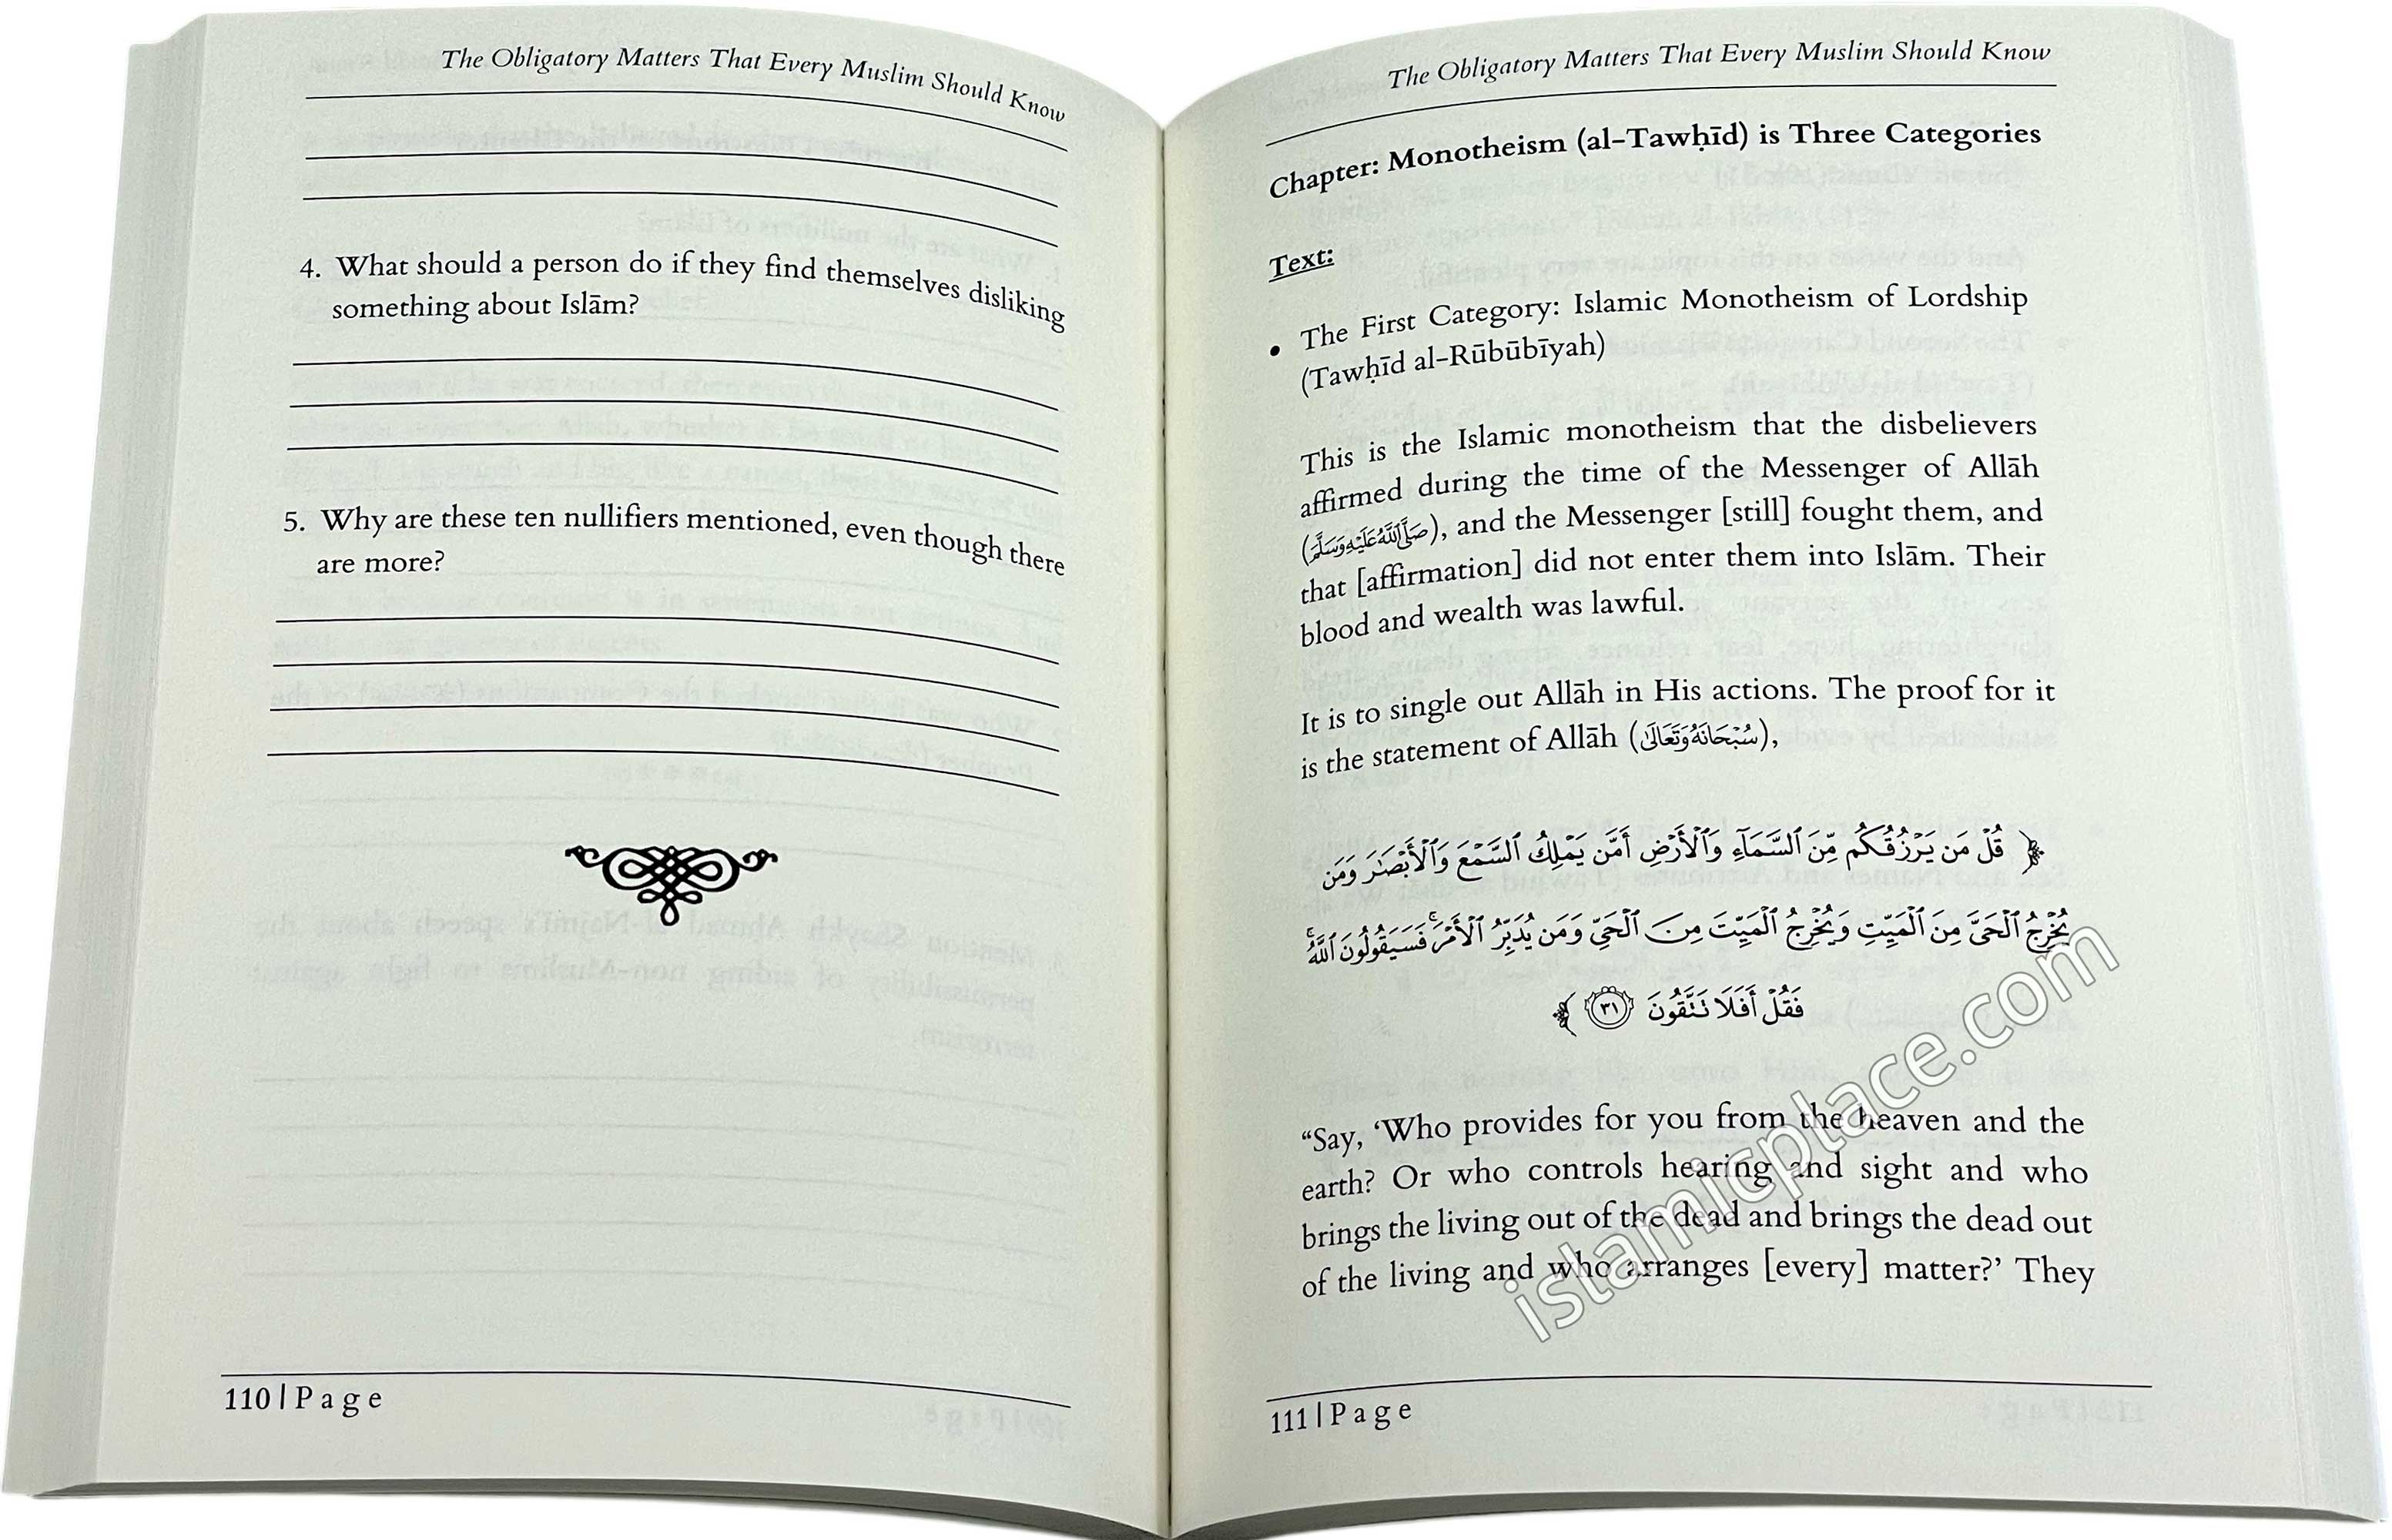 The Obligatory Matters That Every Muslim Should Know
4. What should a person do if they find themselves disliking
something about Islām?
5. Why are these ten nullifiers mentioned, even though there
are more?
110 | P a g e
The Obligatory Matters That Every Muslim Should Know
Chapter: Monotheism (al-Tawḥīd) is Three Categories
Text:
• The First Category: Islamic Monotheism of Lordship
(Tawḥīd al-Rūbūbīyah)
This is the Islamic monotheism that the disbelievers
affirmed during the time of the Messenger of Allāh
(صَلَّى اللَّهُ عَلَيْهِ وَسَلَّمَ), and the Messenger [still] fought them, and
that [affirmation] did not enter them into Islām. Their
blood and wealth was lawful.
It is to single out Allāh in His actions. The proof for it
is the statement of Allāh (سُبْحَانَهُ وَتَعَالَىٰ),
﴿ قُلْ مَن يَرْزُقُكُم مِّنَ ٱلسَّمَآءِ وَٱلْأَرْضِ أَمَّن يَمْلِكُ ٱلسَّمْعَ وَٱلْأَبْصَٰرَ وَمَن
يُخْرِجُ ٱلْحَىَّ مِنَ ٱلْمَيِّتِ وَيُخْرِجُ ٱلْمَيِّتَ مِنَ ٱلْحَىِّ وَمَن يُدَبِّرُ ٱلْأَمْرَ ۚ فَسَيَقُولُونَ ٱللَّهُ ۚ
فَقُلْ أَفَلَا تَتَّقُونَ ٣١ ﴾
“Say, ‘Who provides for you from the heaven and the
earth? Or who controls hearing and sight and who
brings the living out of the dead and brings the dead out
of the living and who arranges [every] matter?’ They
111 | P a g e
islamicplace.com